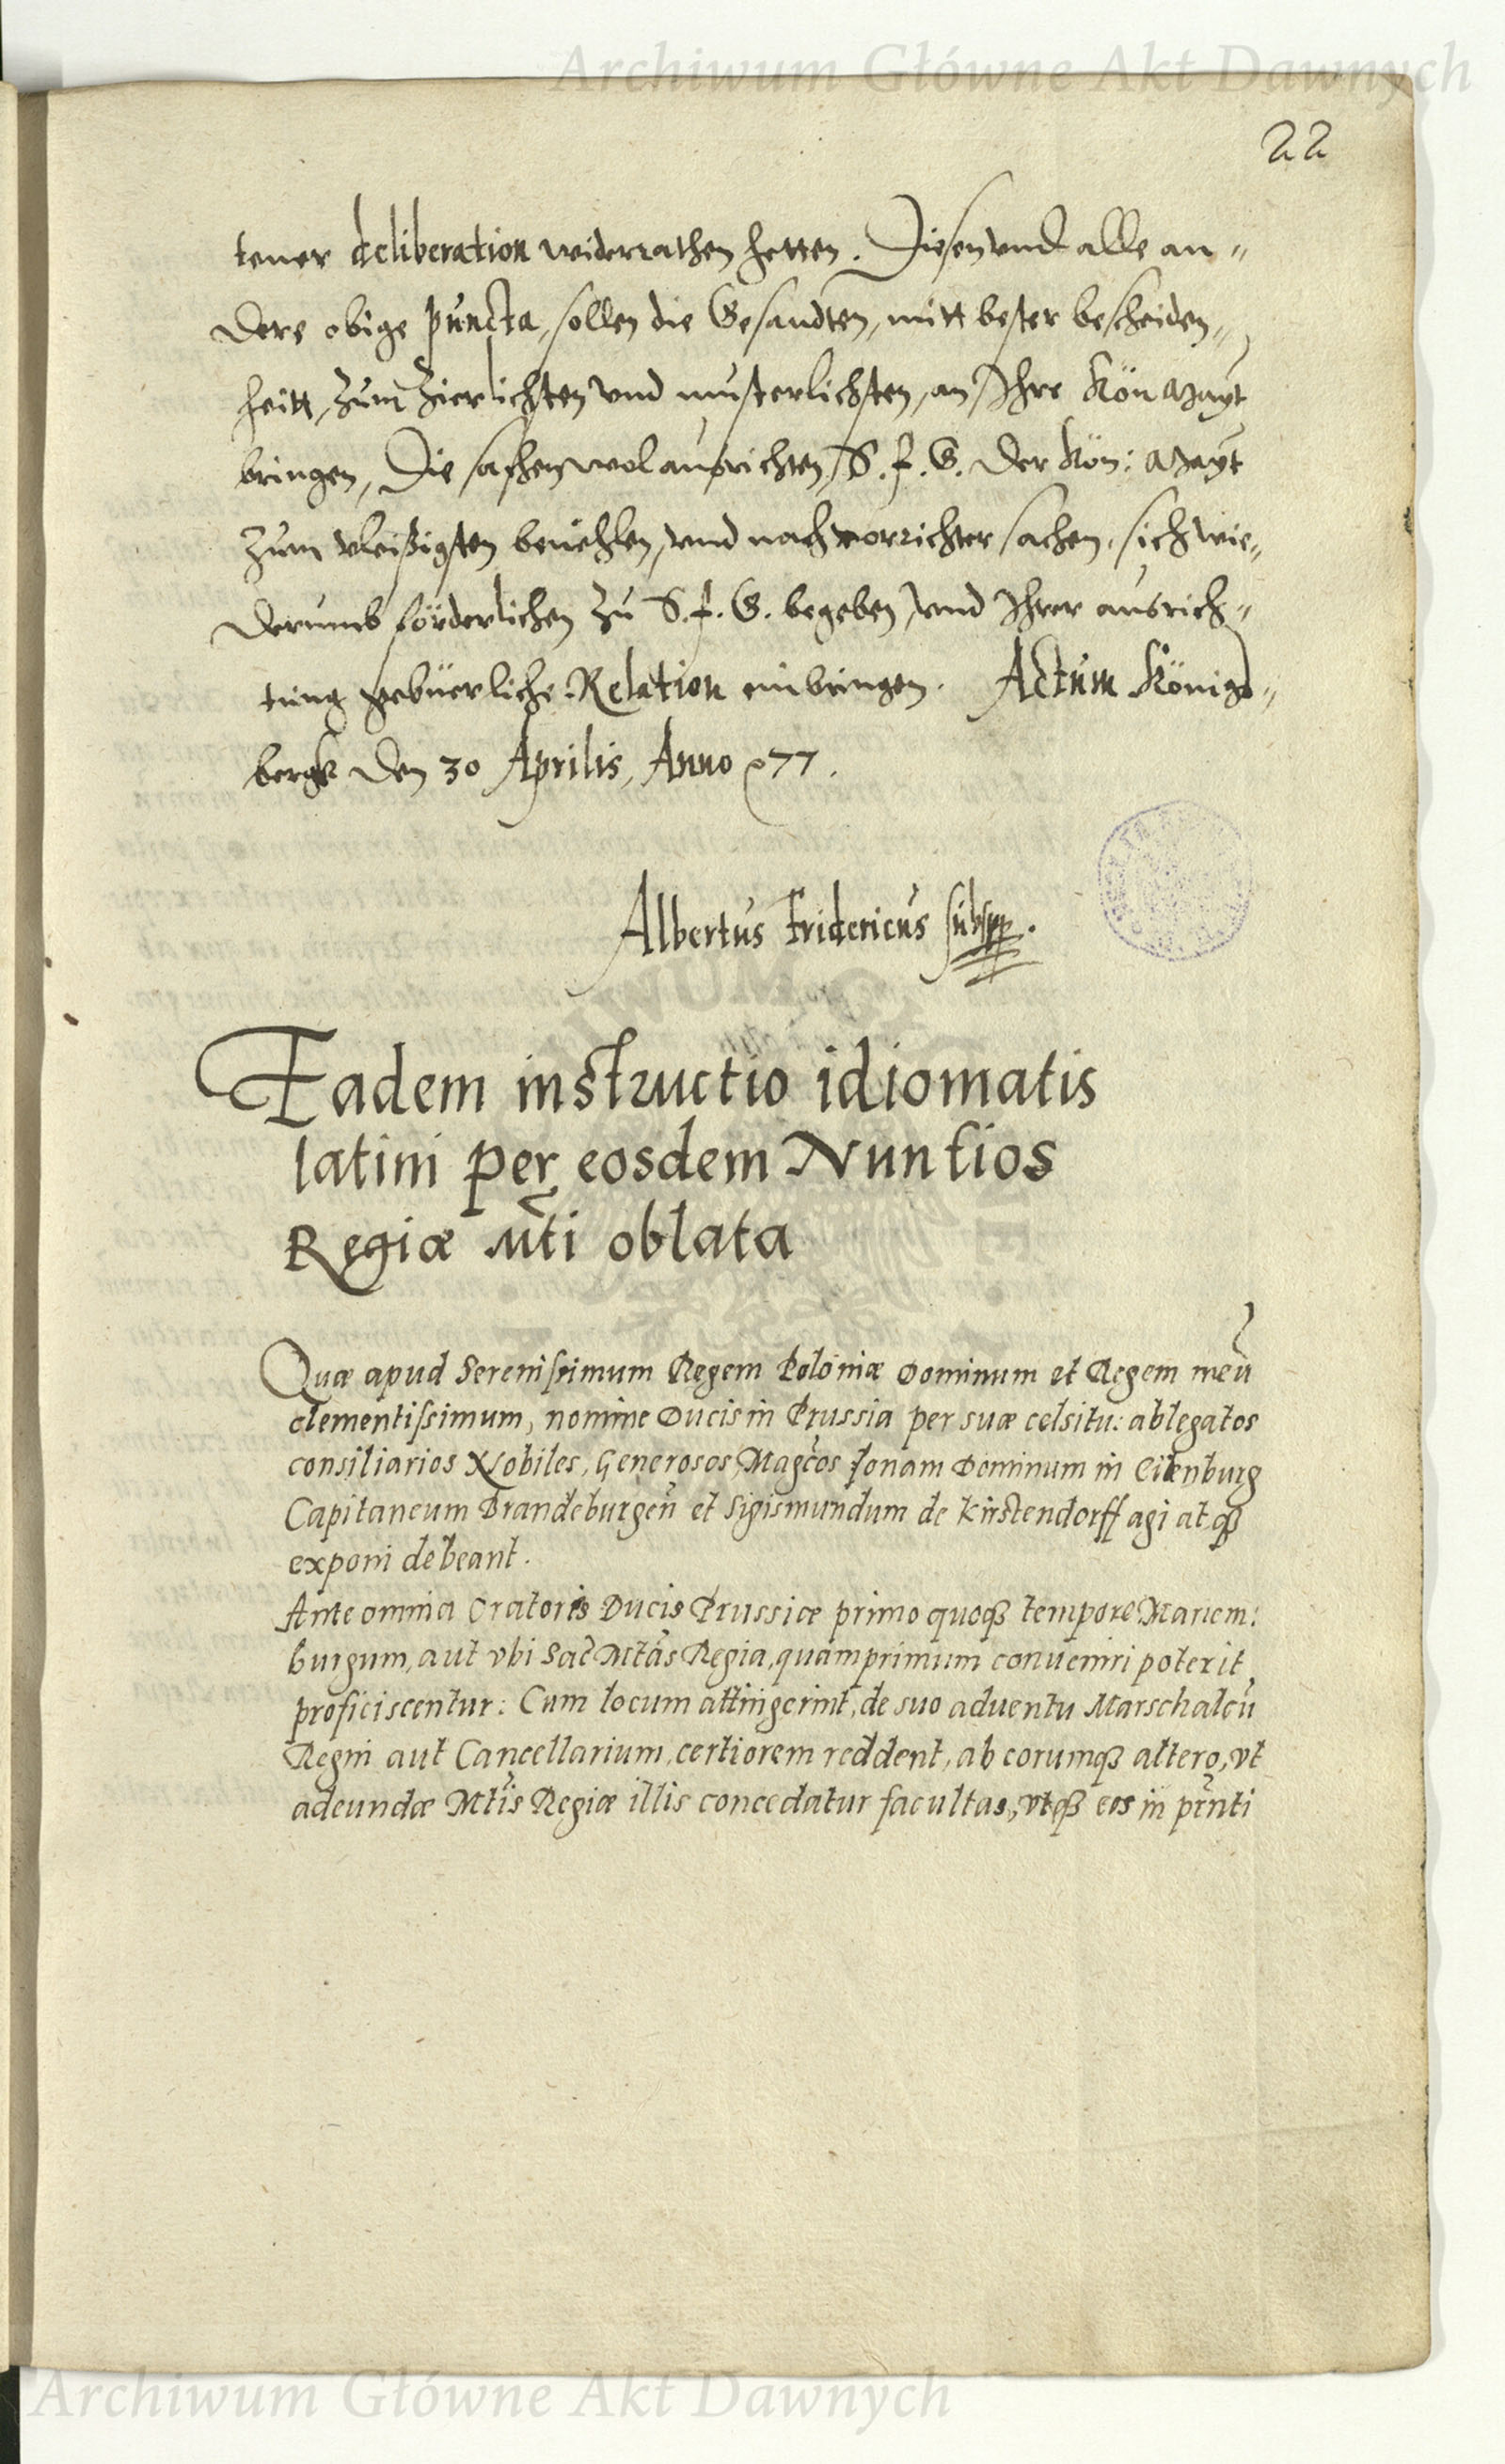 Archiwum Główne Akt Dawnych
22
tener deliberation widerrathen hetten. Diesen vnd alle an-
dere obige puncta, sollen die Gesandten, mitt bester bescheiden-
heitt, zum zierlichsten vnd musterlichsten, an Ihre Kön Mayt
bringen, Die sachen wol ausrichten, S. F. G. der Kön: Mayt
zum vleißigsten beuehlen, vnd nach vorrichter sachen, sich wie-
derumb förderlichen zu S. F. G. begeben, vnd Ihrer ausrich-
tung gebüerliche Relation einbringen. Actum Königs-
bergk den 30 Aprilis, Anno 77.
Albertus Fridericus subsp.
Eadem instructio idiomatis
latini per eosdem Nuntios
Regiæ Mti oblata
Quæ apud Serenissimum Regem Poloniæ Dominum et Regem meū
clementissimum, nomine Ducis in Prussia per suæ celsitu: ablegatos
consiliarios Nobiles, Generosos, Magcos Jonam Dominum in Eilenburg
Capitaneum Brandeburgeñ et Sigismundum de Kirstendorff agi atq3
exponi debeant.
Ante omnia Oratoris Ducis Prussiæ primo quoq3 tempore Mariem:
burgum, aut vbi Sac Mtas Regia, quamprimum conueniri poterit
proficiscentur: Cum locum attingerint, de suo aduentu Marschalcū
Regni aut Cancellarium, certiorem reddent, ab eorumq3 altero, vt
adeundæ Mtis Regiæ illis concedatur facultas, vtq3 eos in prnti
Archiwum Główne Akt Dawnych